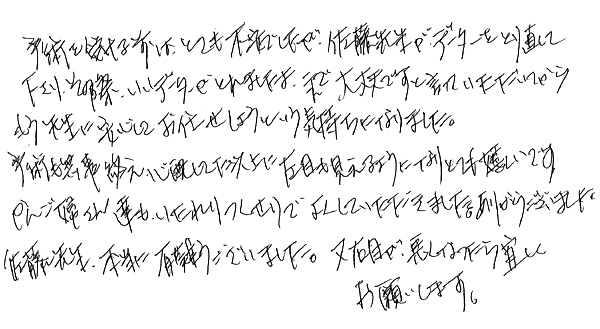 手術を受ける前は、とても不安でしたが、佐藤先生がデーターをとり直して
下さり、その際、いいデーターがとれましたよ、これで大丈夫ですと言っていただいてから
もう先生に安心してお任せしようという気持ちになりました。
手術も無事終え、心配してた以上に左目が見えるようになりとても嬉しいです
かんご婦さん達も、いたれりつくせりでよくしていただきましたありがとうございました。
佐藤先生、本当に有難うございました。又右目が、悪くなったら宜しく
お願いします。